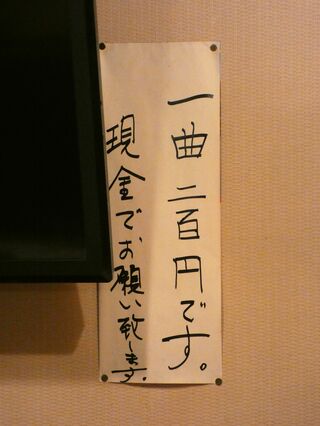 一曲二百円です。
現金でお願い致します。